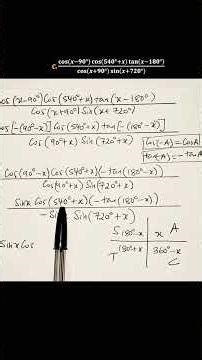 C. cos(x−90°) cos(540°+x) tan(x−180°) / cos(x+90°) sin(x+720°)
Cos(x−90°) Cos(540°+x) tan(x−180°)
Cos(x+90°) Sin(x+720°)
Cos[−(90°−x)] Cos(540°+x) tan[−(180°−x)]
Cos(90°+x) Sin(720°+x)
Cos(−A) = CosA
tan(−A) = −tan
Cos(90°−x) Cos(540°+x) (−tan(180°−x))
Cos(90°+x) Sin(720°+x)
Sinx Cos(540°+x) (−tan(180°−x))
− Sin Sin(720°+x)
Sinx Cos
S 180°−x x A
180°+x 360°−x
T C